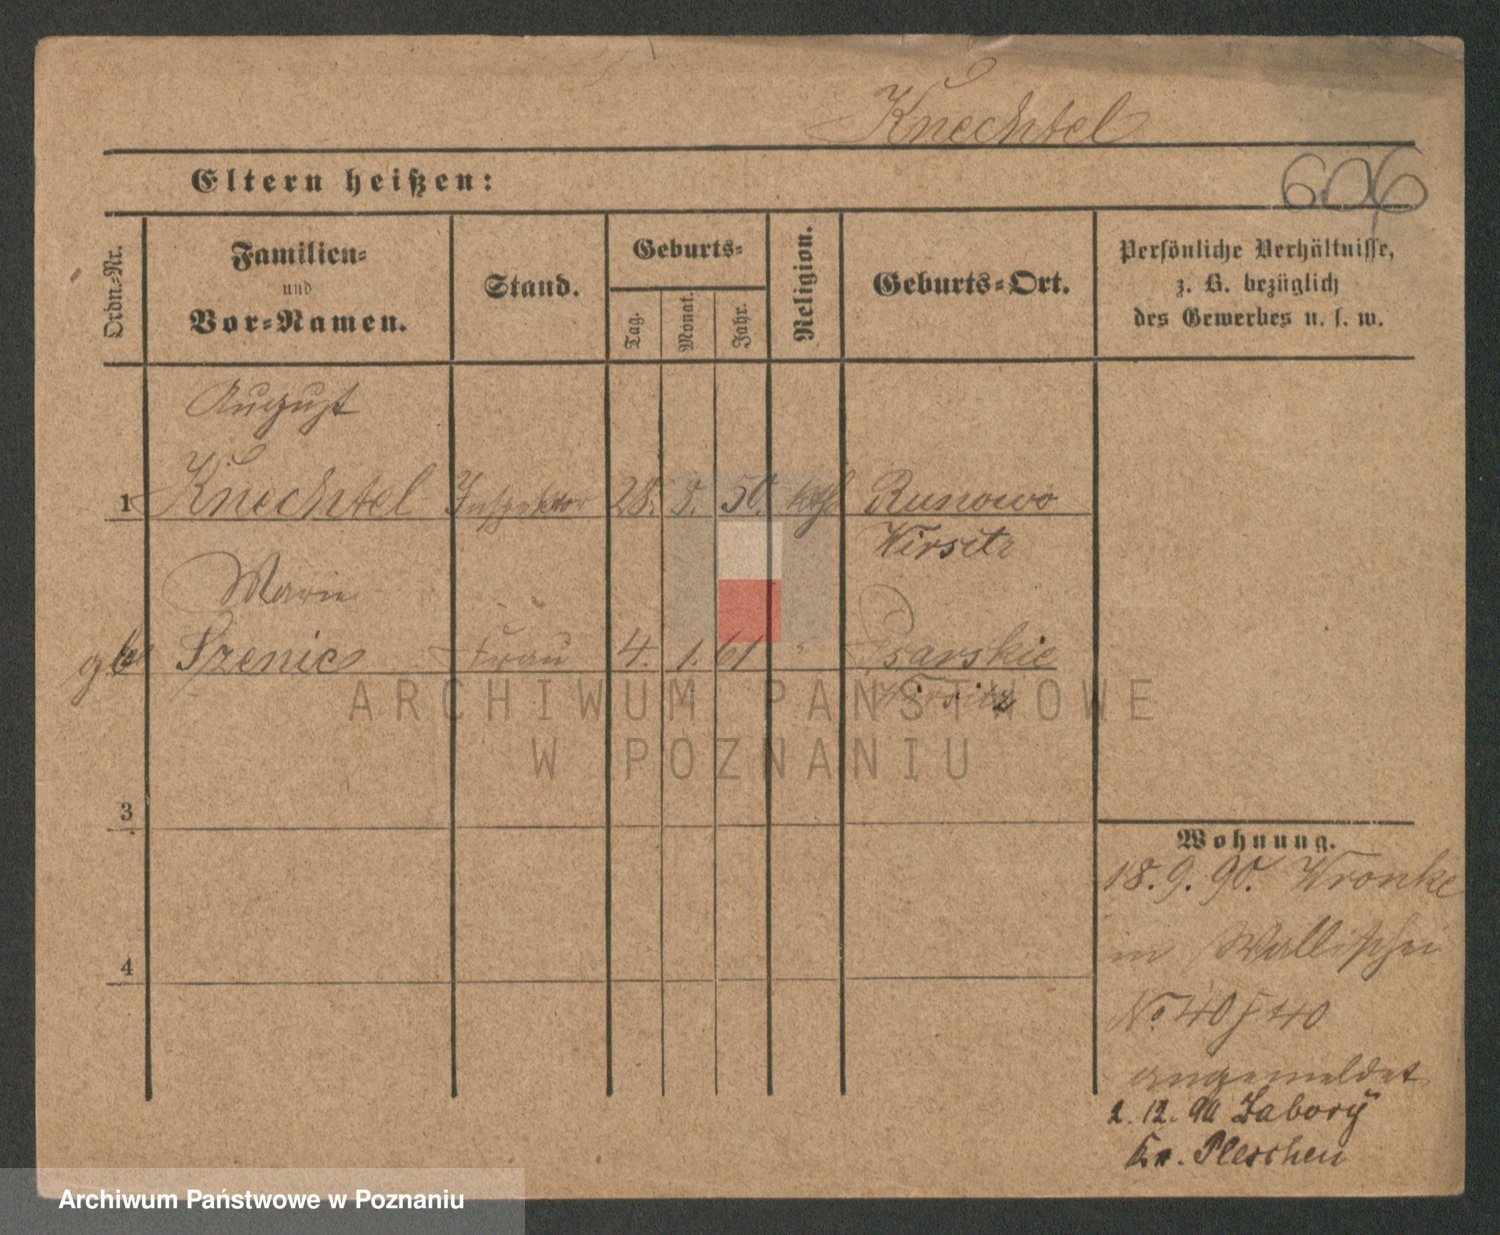 Knechtel
Eltern heißen:
606
Ordn.-Nr.
Familien-
und
Vor-Namen.
Stand.
Geburts-
Tag.
Monat.
Jahr.
Religion.
Geburts-Ort.
Persönliche Verhältnisse,
z. B. bezüglich
des Gewerbes u. s. w.
August
1 Knechtel Inspektor 28. 8. 50. kth Runowo
Wirsitz
Marie
geb Szenic Frau 4. 1. 61 " Psarskie
Wirsitz
3
4
Wohnung.
18. 9. 90. Wronke
in Wallischei
No 40/40
angemeldet
2. 12. 90 Zabory
Kr. Pleschen
ARCHIWUM PAŃSTWOWE
W POZNANIU
Archiwum Państwowe w Poznaniu